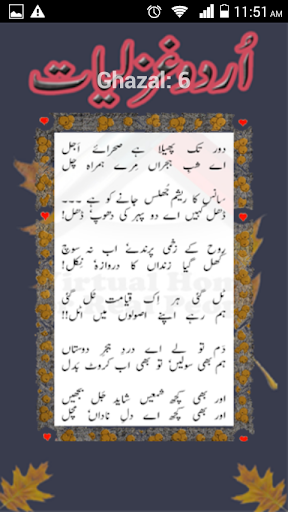 11:51 AM
اُردو غزلیات
Ghazal: 6
دور تک پھیلا ہے صحرائے اَجل
اے شبِ ہجراں مِرے ہمراہ چل
سانس کا ریشم جُھلس جانے کو ہے ...
ڈھل کہیں اے دو پہر کی دھوپ، ڈھل!
روح کے زخمی پرندے، اب نہ سوچ
کُھل گیا زنداں کا دروازہ، نکل!
ٹل گئی ہر اک قیامت ٹل گئی
ہم رہے اپنے اصولوں میں اٹل!!
دَم تو لے اے دردِ ہجرِ دوستاں
ہم بھی سولیں، تو بھی اب کروٹ بدل
اور بھی کچھ شمعیں شاید جَل بجھیں
اور بھی کچھ اے دلِ ناداں، مچل